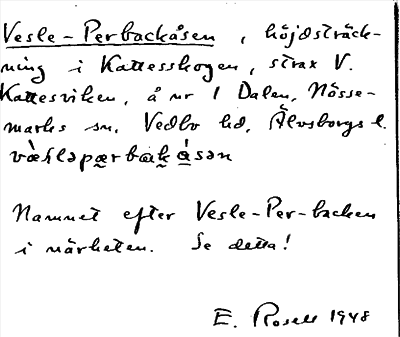 Vesle-Perbackåsen, höjdsträck-
ning i Kattesskogen, strax V.
Kattesviken, å nr 1 Dalen, Nösse-
marks sn. Vedbo hd, Älvsborgs l.
Namnet efter Vesle-Per-backen
i närheten. Se detta!
E. Rosell 1948